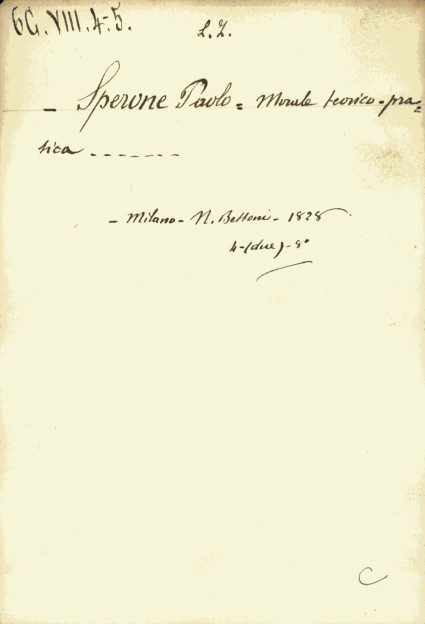 6G. VIII. 4-5.
L. I.
- Sperone Paolo = Morale teorico-pra=
tica - - - - - - -
- Milano - N. Bettoni - 1828
4 - (due) - 8°
C